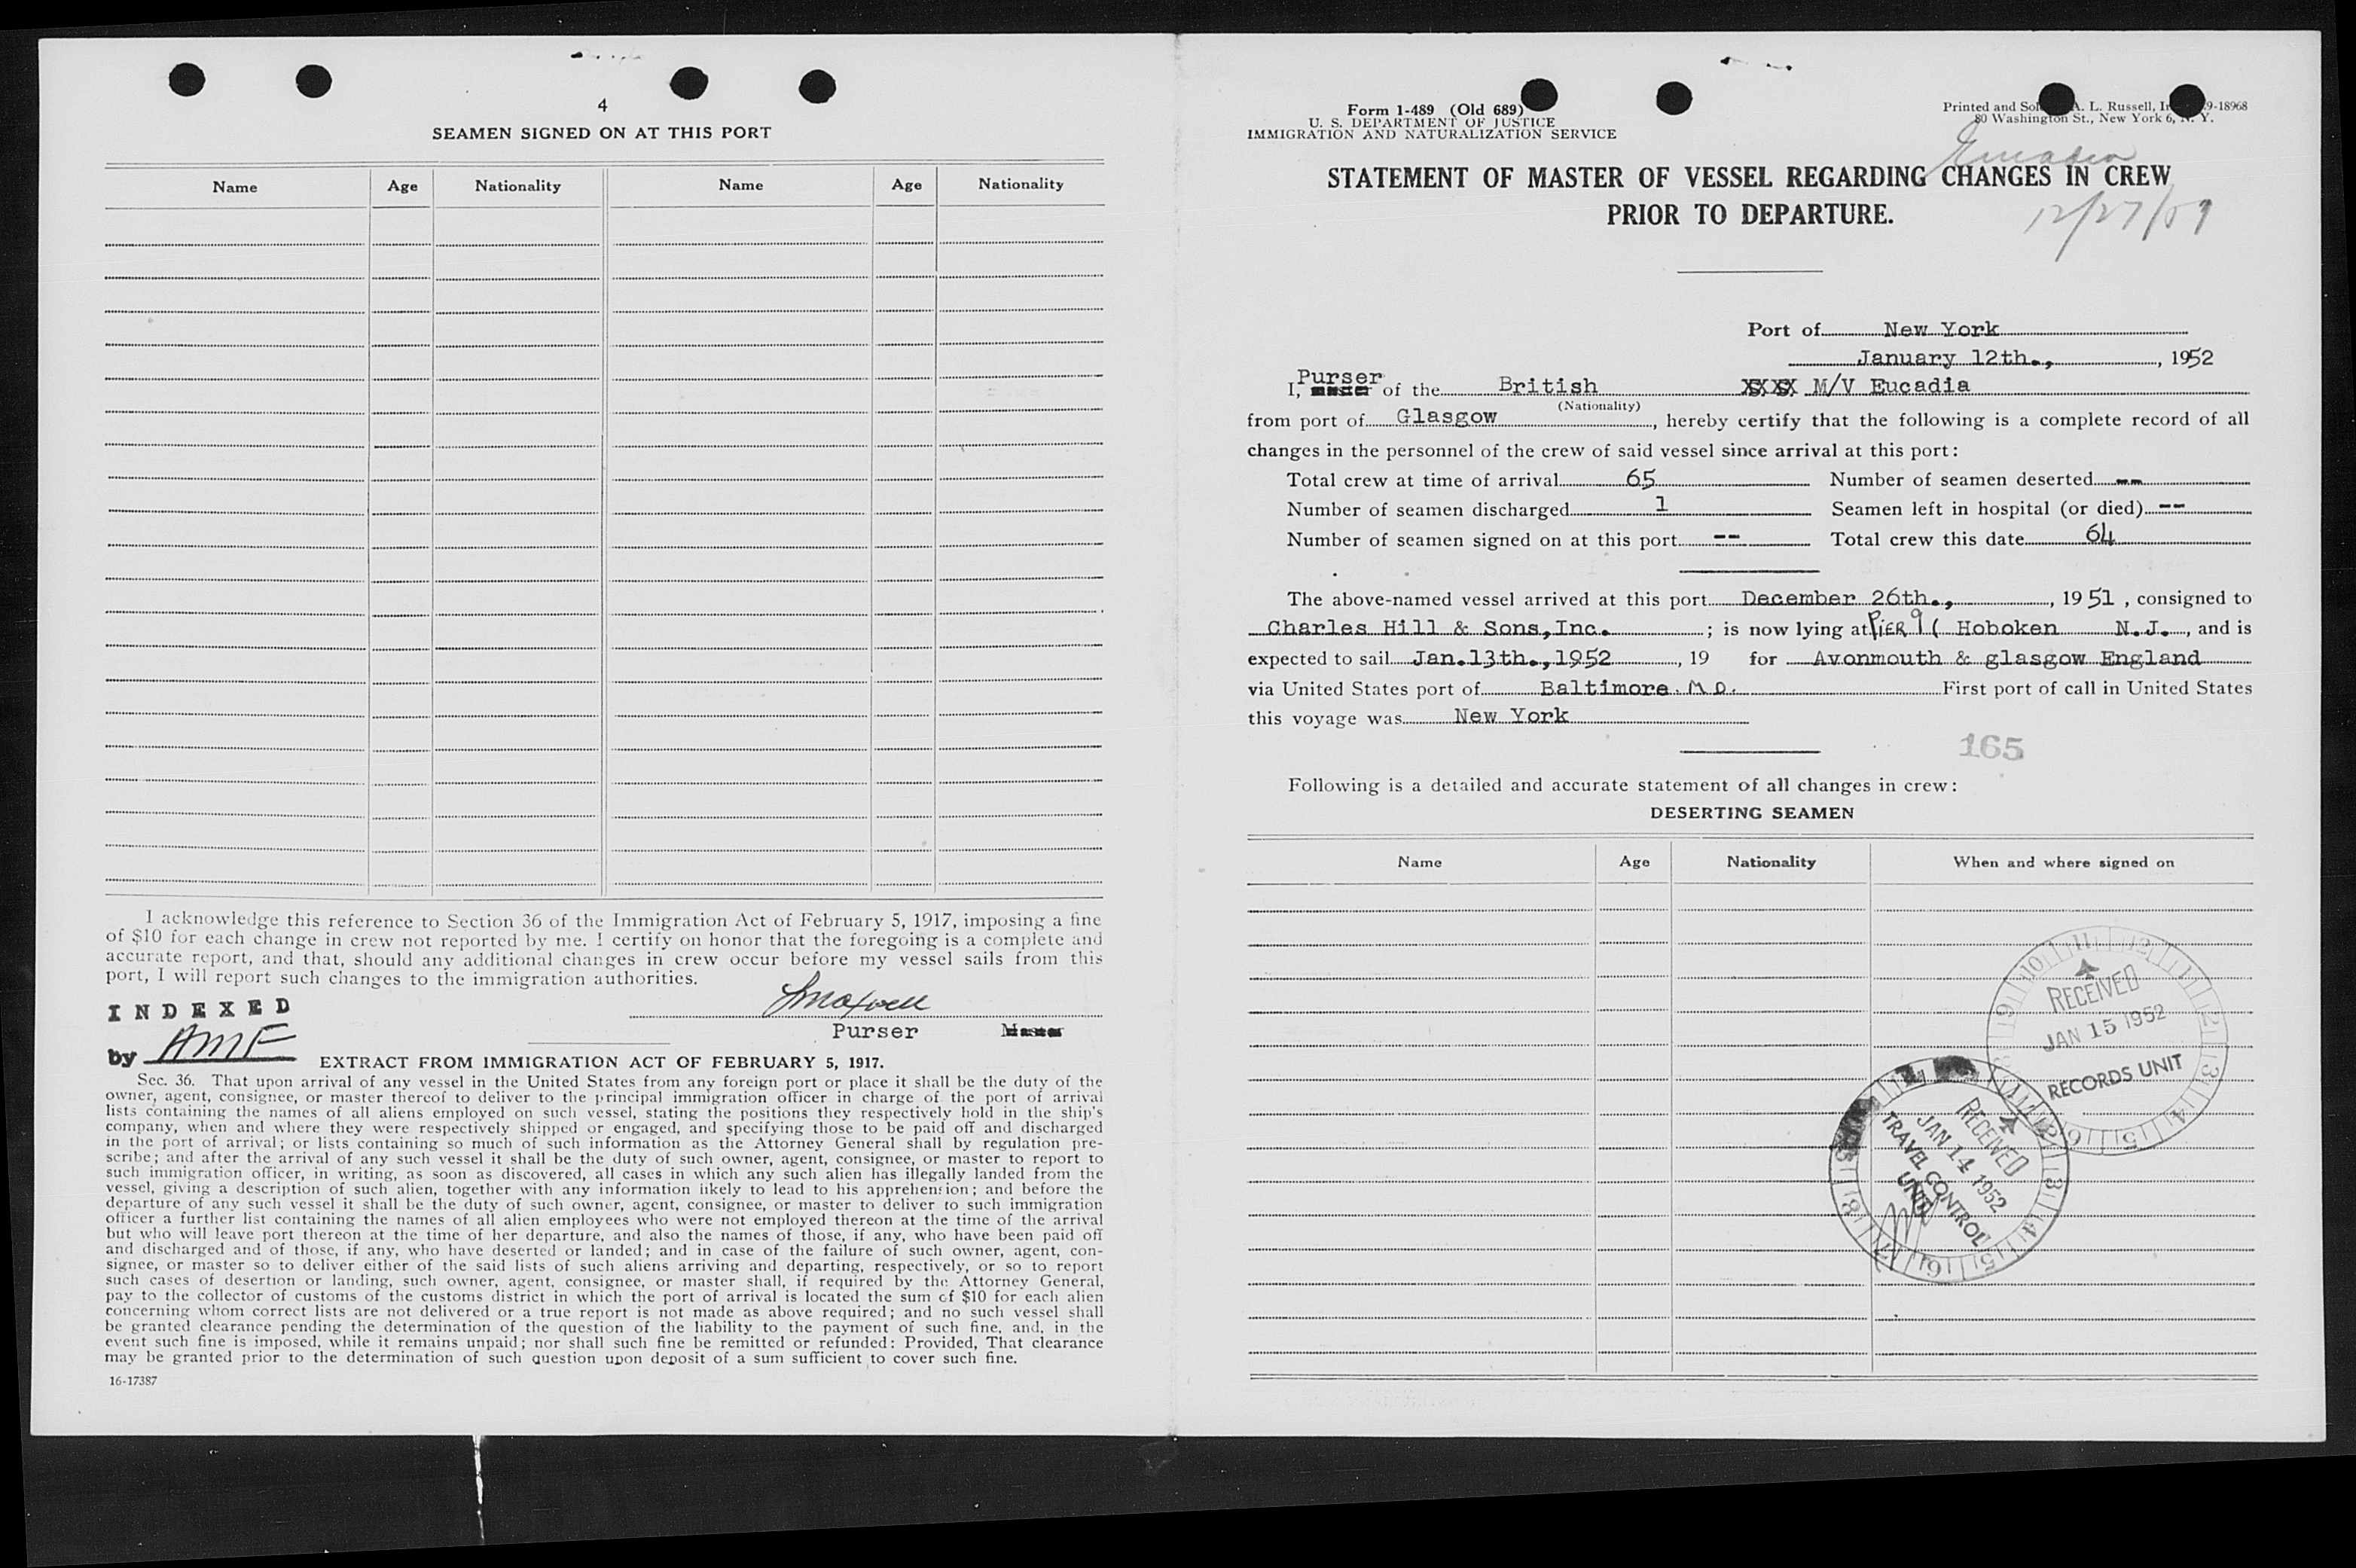 4
SEAMEN SIGNED ON AT THIS PORT
Name Age Nationality Name Age Nationality
I acknowledge this reference to Section 36 of the Immigration Act of February 5, 1917, imposing a fine
of $10 for each change in crew not reported by me. I certify on honor that the foregoing is a complete and
accurate report, and that, should any additional changes in crew occur before my vessel sails from this
port, I will report such changes to the immigration authorities.
INDEXED
by AMF
Purser
EXTRACT FROM IMMIGRATION ACT OF FEBRUARY 5, 1917.
Sec. 36. That upon arrival of any vessel in the United States from any foreign port or place it shall be the duty of the
owner, agent, consignee, or master thereof to deliver to the principal immigration officer in charge of the port of arrival
lists containing the names of all aliens employed on such vessel, stating the positions they respectively hold in the ship's
company, when and where they were respectively shipped or engaged, and specifying those to be paid off and discharged
in the port of arrival; or lists containing so much of such information as the Attorney General shall by regulation pre-
scribe; and after the arrival of any such vessel it shall be the duty of such owner, agent, consignee, or master to report to
such immigration officer, in writing, as soon as discovered, all cases in which any such alien has illegally landed from the
vessel, giving a description of such alien, together with any information likely to lead to his apprehension; and before the
departure of any such vessel it shall be the duty of such owner, agent, consignee, or master to deliver to such immigration
officer a further list containing the names of all alien employees who were not employed thereon at the time of the arrival
but who will leave port thereon at the time of her departure, and also the names of those, if any, who have been paid off
and discharged and of those, if any, who have deserted or landed; and in case of the failure of such owner, agent, con-
signee, or master so to deliver either of the said lists of such aliens arriving and departing, respectively, or so to report
such cases of desertion or landing, such owner, agent, consignee, or master shall, if required by the Attorney General,
pay to the collector of customs of the customs district in which the port of arrival is located the sum of $10 for each alien
concerning whom correct lists are not delivered or a true report is not made as above required; and no such vessel shall
be granted clearance pending the determination of the question of the liability to the payment of such fine, and, in the
event such fine is imposed, while it remains unpaid; nor shall such fine be remitted or refunded: Provided, That clearance
may be granted prior to the determination of such question upon deposit of a sum sufficient to cover such fine.
16-17387
Form 1-489 (Old 689)
U. S. DEPARTMENT OF JUSTICE
IMMIGRATION AND NATURALIZATION SERVICE
Printed and A. L. Russell, 9-18968
80 Washington St., New York 6, N. Y.
STATEMENT OF MASTER OF VESSEL REGARDING CHANGES IN CREW
PRIOR TO DEPARTURE.
12/27/51
Port of New York
January 12th., , 1952
I, Purser of the British XXXX M/V Eucadia
(Nationality)
from port of Glasgow , hereby certify that the following is a complete record of all
changes in the personnel of the crew of said vessel since arrival at this port:
Total crew at time of arrival 65 Number of seamen deserted --
Number of seamen discharged 1 Seamen left in hospital (or died) --
Number of seamen signed on at this port -- Total crew this date 64
The above-named vessel arrived at this port December 26th., , 1951 , consigned to
Charles Hill & Sons,Inc. ; is now lying at PIER 9 ( Hoboken N.J. , and is
expected to sail Jan.13th.,1952 , 19 for Avonmouth & glasgow England
via United States port of Baltimore. MD. First port of call in United States
this voyage was New York
165
Following is a detailed and accurate statement of all changes in crew:
DESERTING SEAMEN
Name Age Nationality When and where signed on
RECEIVED
JAN 15 1952
RECORDS UNIT
RECEIVED
JAN 14 1952
TRAVEL CONTROL
UNIT